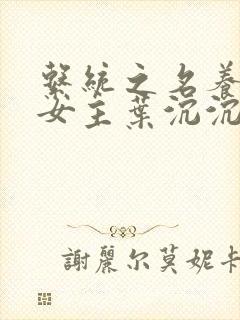 繫統之名養
女主葉沉沉
謝麗尔莫妮卡